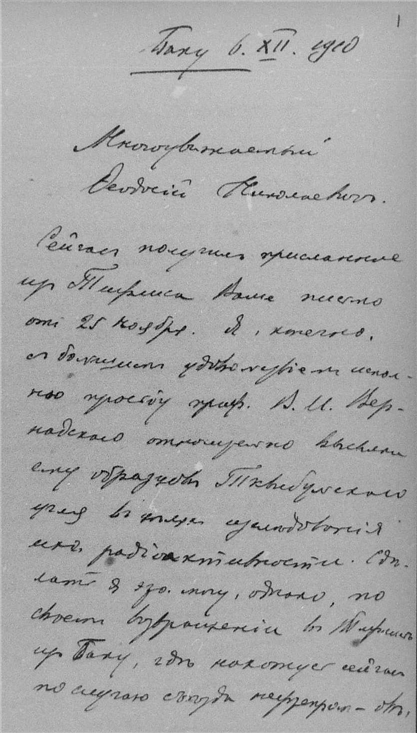 1
Баку 6. XII. 1910
Многоуважаемый
Феодосій Николаевичъ.
Сейчасъ получилъ присланное
изъ Тифлиса Ваше письмо
отъ 25 Ноября. Я, конечно,
съ большимъ удовольствіемъ испол-
ню просьбу проф. В. И. Вер-
надскаго относительно высылки
ему образцовъ Тквибульскаго
угля въ цѣляхъ изслѣдованія
ихъ радіоактивности. Сдѣ-
лать я это могу, однако, по
своемъ возвращеніи въ Тифлисъ
изъ Баку, гдѣ нахожусь сейчасъ
по случаю съѣзда нефтепром-овъ,